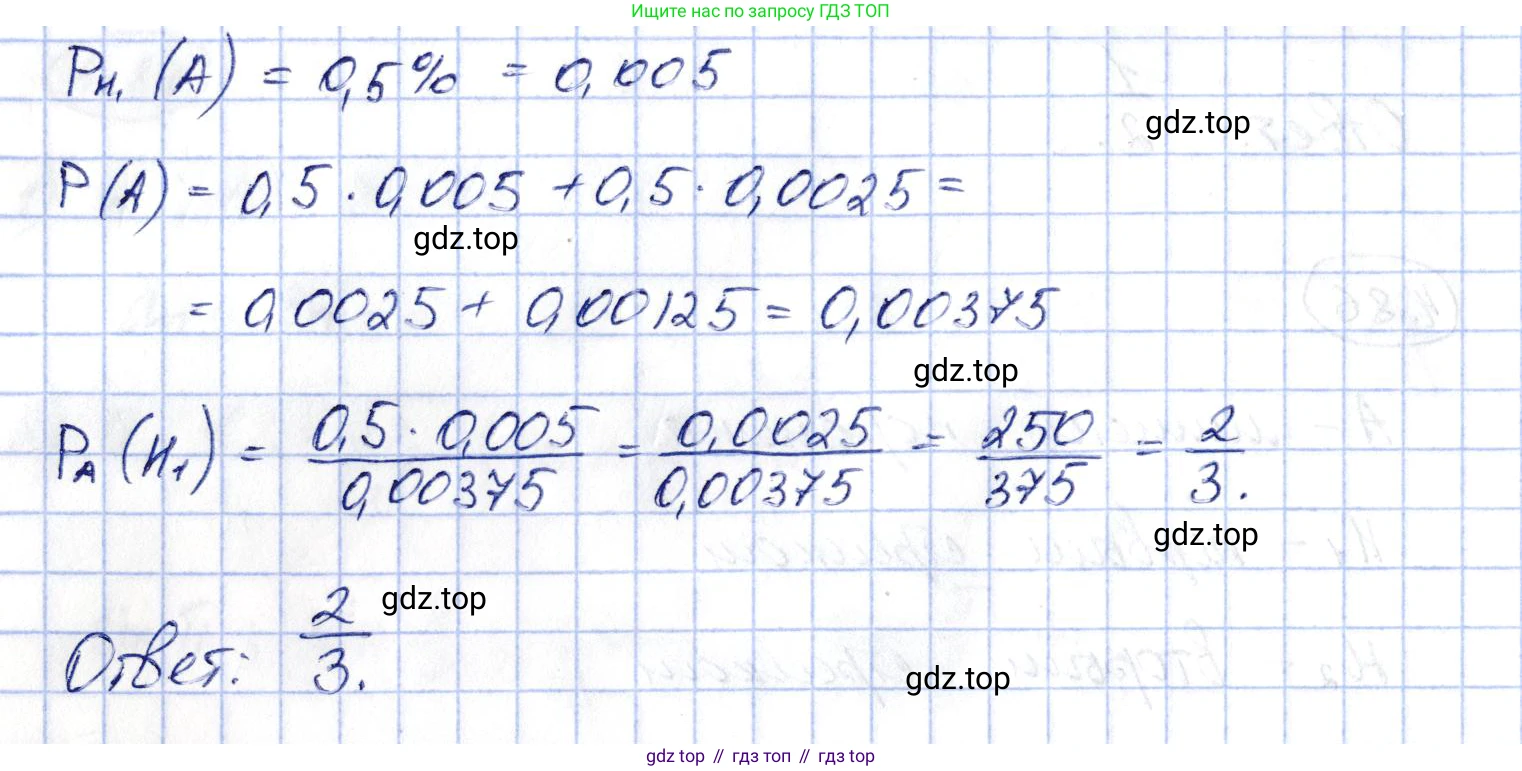 Ищите нас по запросу ГДЗ ТОП
P_H₁(A) = 0,5% = 0,005
gdz.top
P(A) = 0,5 · 0,005 + 0,5 · 0,0025 =
gdz.top
= 0,0025 + 0,00125 = 0,00375
gdz.top
P_A(H₁) = (0,5 · 0,005)/(0,00375) = 0,0025/0,00375 = 250/375 = 2/3.
gdz.top
gdz.top
Ответ: 2/3.
gdz.top
gdz top // гдз топ // гдз top